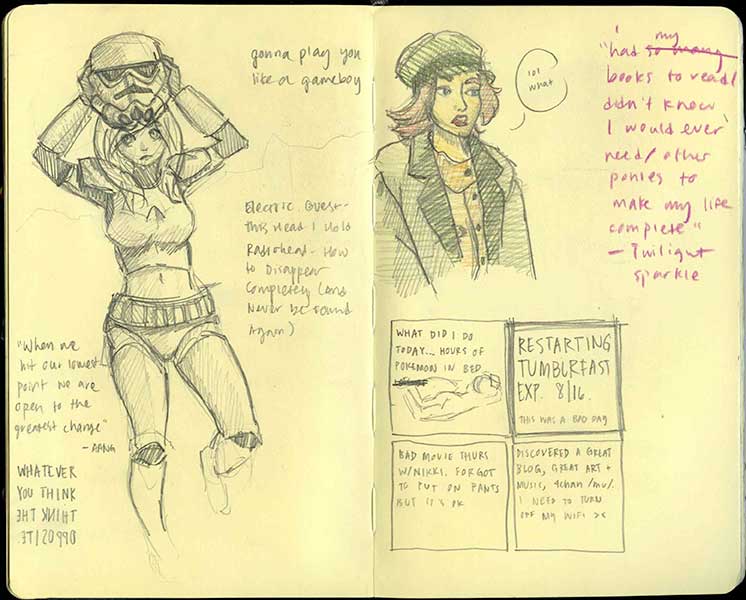 gonna play you
like a gameboy
Electric Guest -
this Head I Hold
Radiohead - How
to Disappear
Completely (and
Never be found
Again)
"When we
hit our lowest
point we are
open to the
greatest change"
- AANG
WHATEVER
YOU THINK
THINK THE
OPPOSITE.
lol
what
I my
"had so many
books to read/
didn't know
I would ever
need/other
ponies to
make my life
complete"
- Twilight
sparkle
WHAT DID I DO
TODAY... HOURS OF
POKEMON IN BED
RESTARTING
TUMBLRFAST
EXP. 8/16.
THIS WAS A BAD DAY
BAD MOVIE THURS
W/NIKKI. FORGOT
TO PUT ON PANTS
BUT IT'S OK
DISCOVERED A GREAT
BLOG, GREAT ART +
MUSIC, 4chan /mu/.
I NEED TO TURN
OFF MY WIFI ><